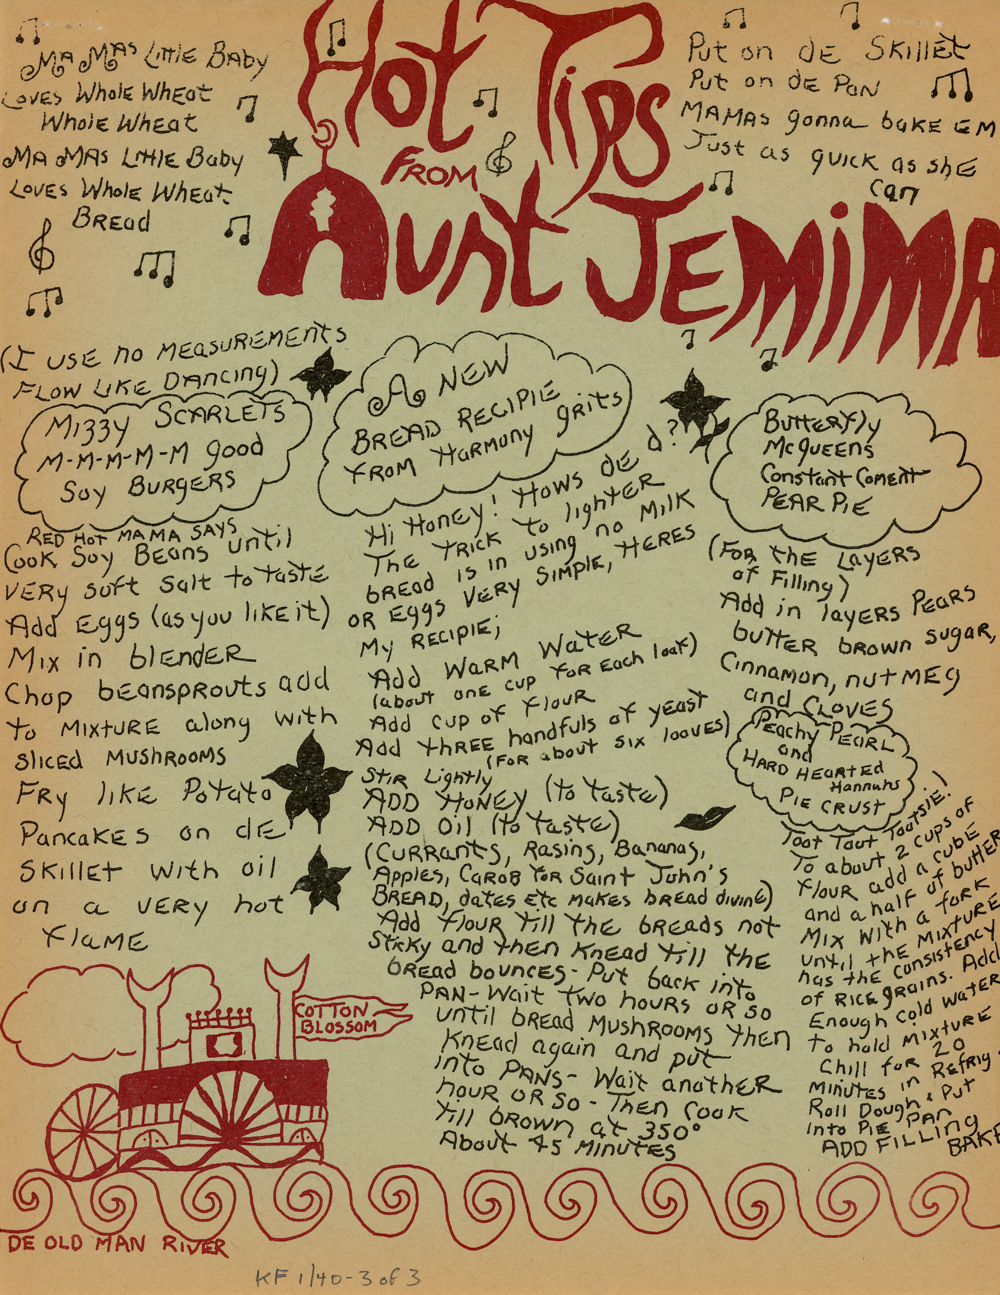 MA MAs Little Baby
Loves Whole Wheat
Whole Wheat
MA MAs Little Baby
Loves Whole Wheat
Bread
Hot Tips
FROM
Aunt JEMIMA
Put on de Skillet
Put on de Pan
MAMAs gonna bake em
Just as quick as she
can
(I use no MEASUREMENTS
FLOW LIKE DANCING)
Mizzy SCARLETS
M-M-M-M-M good
Soy BURGERS
RED HOT MAMA SAYS
Cook Soy Beans until
VERY soft salt to taste
Add Eggs (as you like it)
Mix in blender
Chop beansprouts add
to Mixture along with
sliced MUSHROOMS
FRY like Potato
Pancakes on de
skillet with oil
on a very hot
flame
A NEW
BREAD RECIPIE
FROM Harmony grits
Hi Honey! Hows de d?
The trick to lighter
bread is in using no Milk
OR Eggs VERY SIMPLE, HERES
My RECIPIE;
Add WARM Water
(about one cup for each loaf)
Add cup of flour
Add three handfuls of yeast
(for about six looves)
Stir Lightly
ADD HONEY (to taste)
ADD Oil (to taste)
(Currants, Rasins, Bananas,
Apples, Carob for Saint John's
BREAD, dates etc makes bread divine)
Add flour till the breads not
Sticky and then knead till the
bread bounces- Put back into
PAN- Wait two hours or so
until bread Mushrooms then
Knead again and put
into PANS- Wait another
hour or so - Then Cook
till brown at 350°
About 45 minutes
Butterfly
McQueens
Constant Coment
PEAR PIE
(For the Layers
of Filling)
Add in layers Pears
butter brown sugar,
Cinnamon, nutmeg
and CLOVES
Peachy Pearl
and
HARD HEARTED
Hannahs
PIE CRUST
Toot Toot Tootsie!
To about 2 cups of
flour add a cube
and a half of butter
Mix with a fork
until the mixture
has the consistency
of Rice grains. Add
Enough cold water
to hold mixture
Chill for 20
minutes in Refrig.
Roll Dough & Put
into PIE PAN
ADD FILLING
BAKE
COTTON
BLOSSOM
DE OLD MAN RIVER
KF 1/40-3 of 3